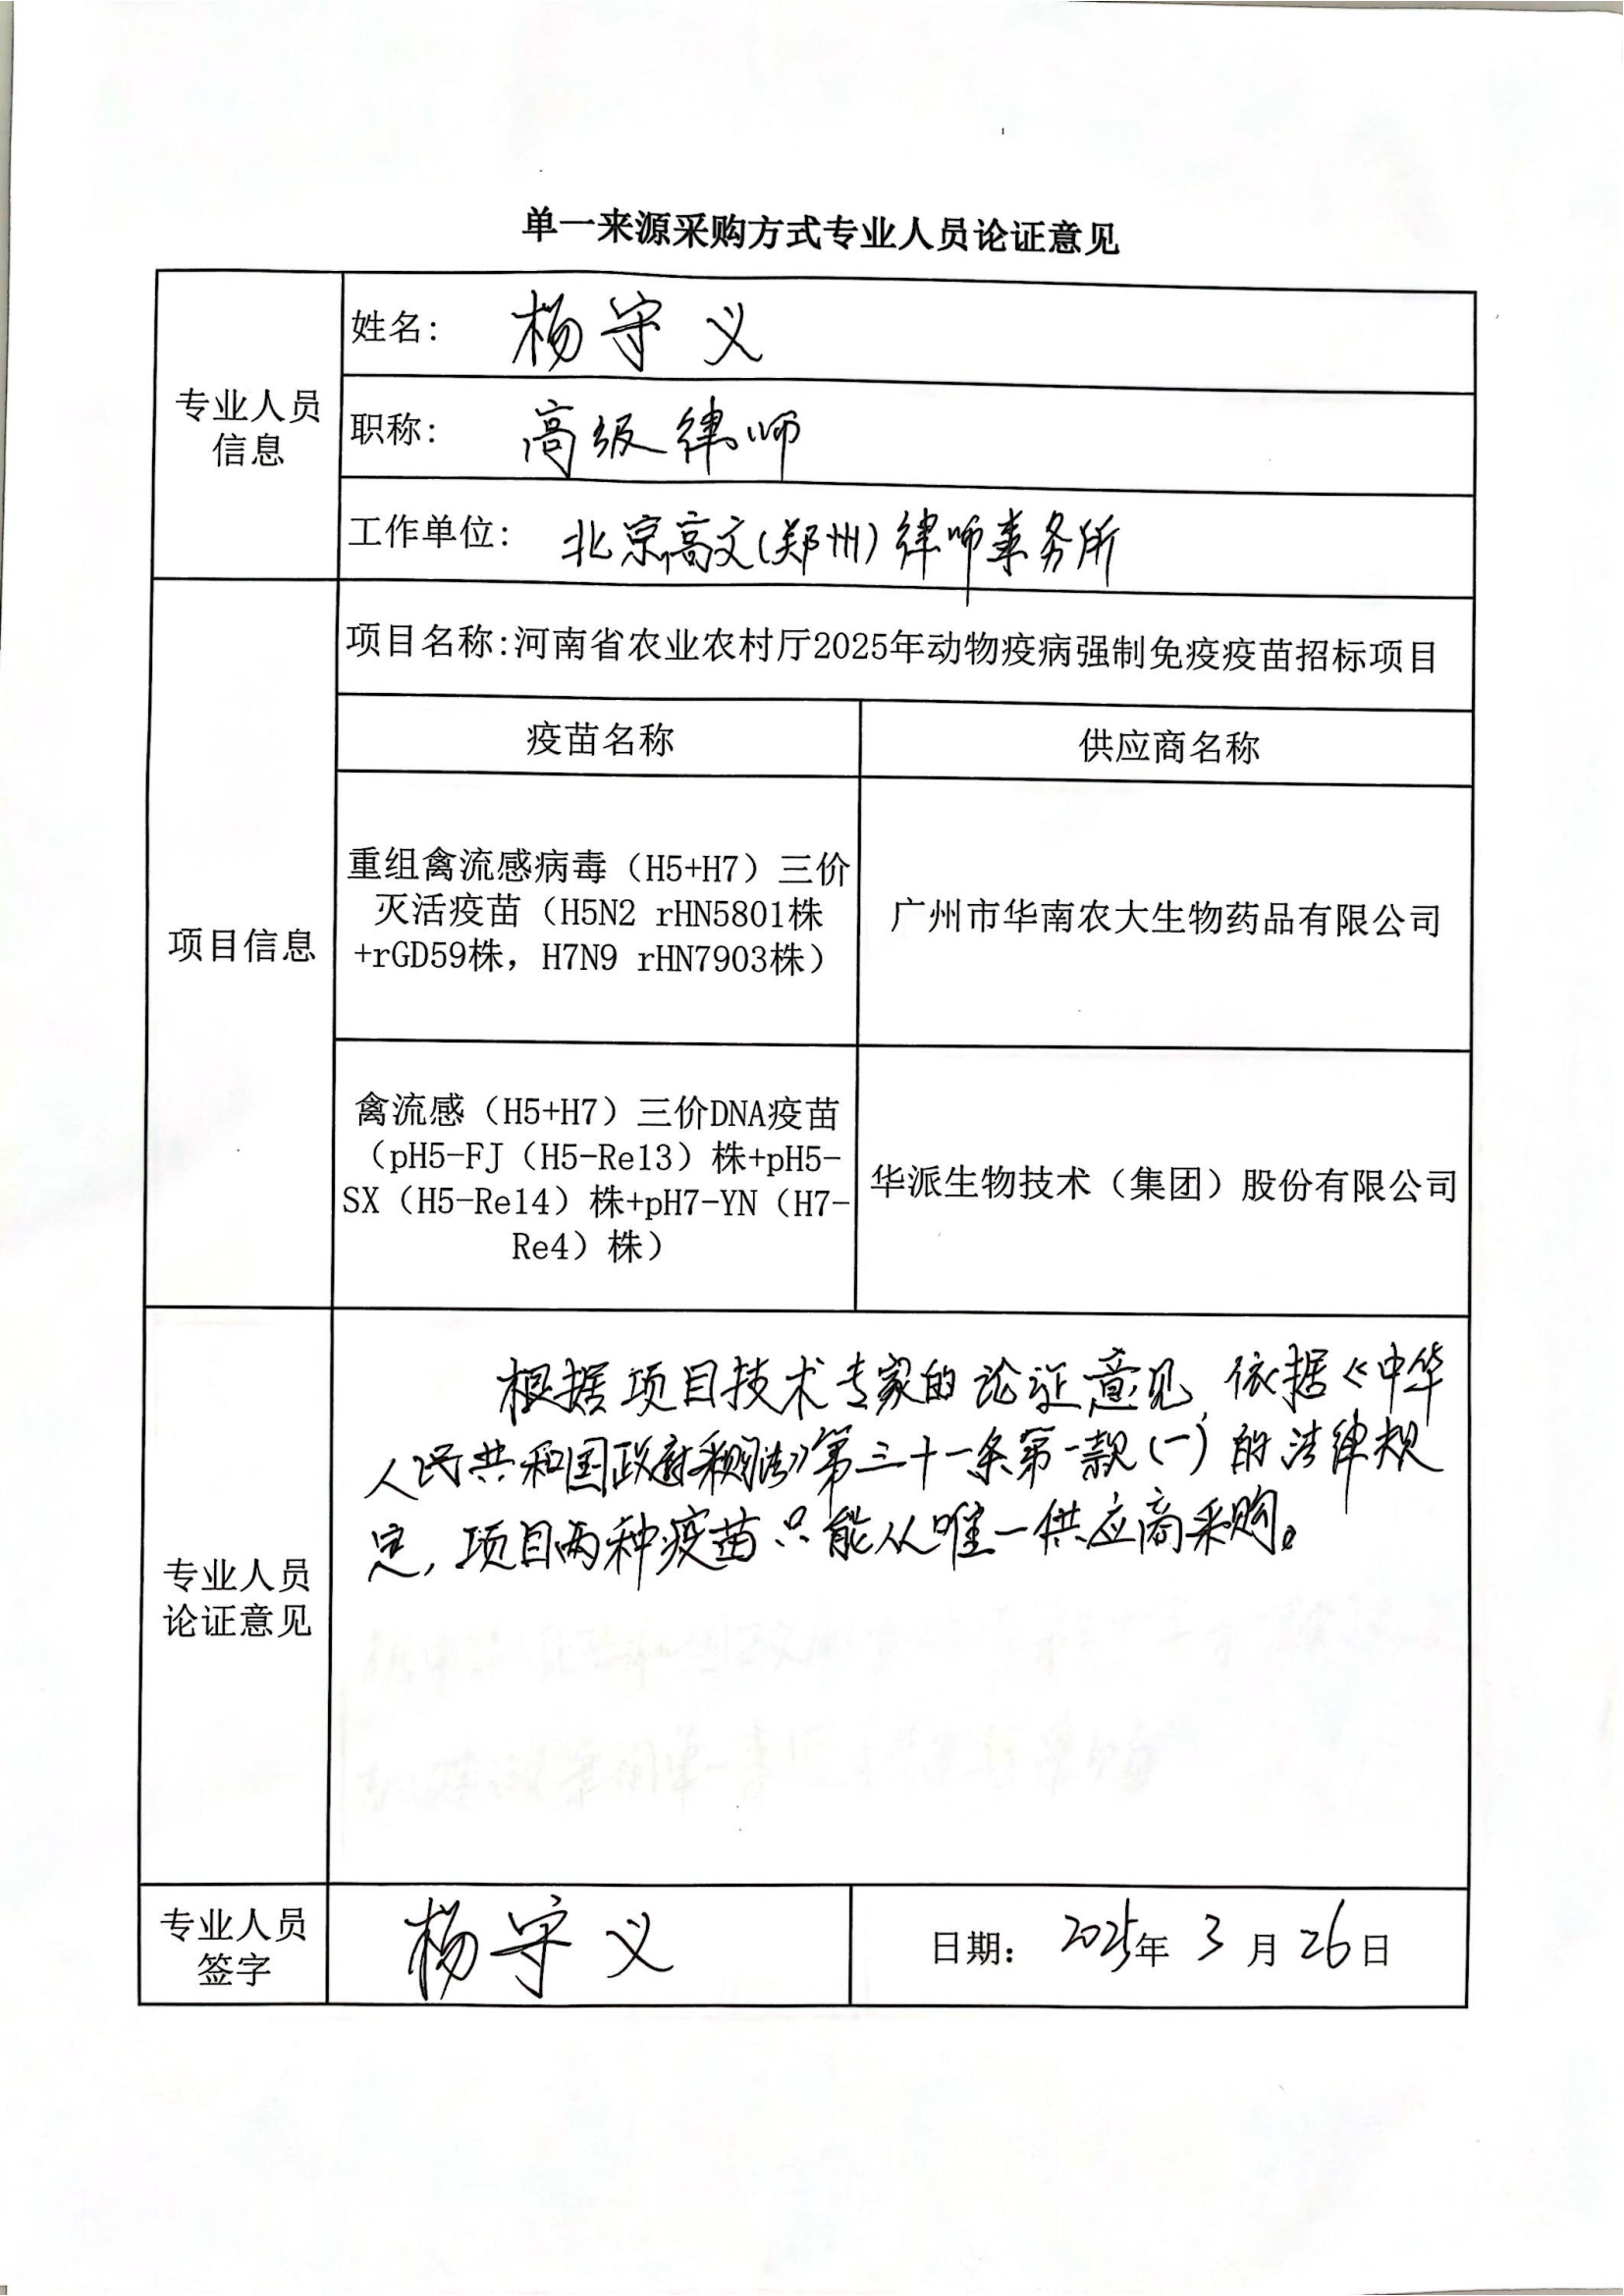 单一来源采购方式专业人员论证意见
专业人员
信息
姓名: 杨守义
职称: 高级律师
工作单位: 北京高文(郑州)律师事务所
项目信息
项目名称:河南省农业农村厅2025年动物疫病强制免疫疫苗招标项目
疫苗名称
供应商名称
重组禽流感病毒（H5+H7）三价
灭活疫苗（H5N2 rHN5801株
+rGD59株，H7N9 rHN7903株）
广州市华南农大生物药品有限公司
禽流感（H5+H7）三价DNA疫苗
（pH5-FJ（H5-Re13）株+pH5-
SX（H5-Re14）株+pH7-YN（H7-
Re4）株）
华派生物技术（集团）股份有限公司
专业人员
论证意见
根据项目技术专家的论证意见,依据《中华
人民共和国政府采购法》第三十一条第一款(一)的法律规
定,项目两种疫苗只能从唯一供应商采购。
专业人员
签字
杨守义
日期: 2025年3月26日